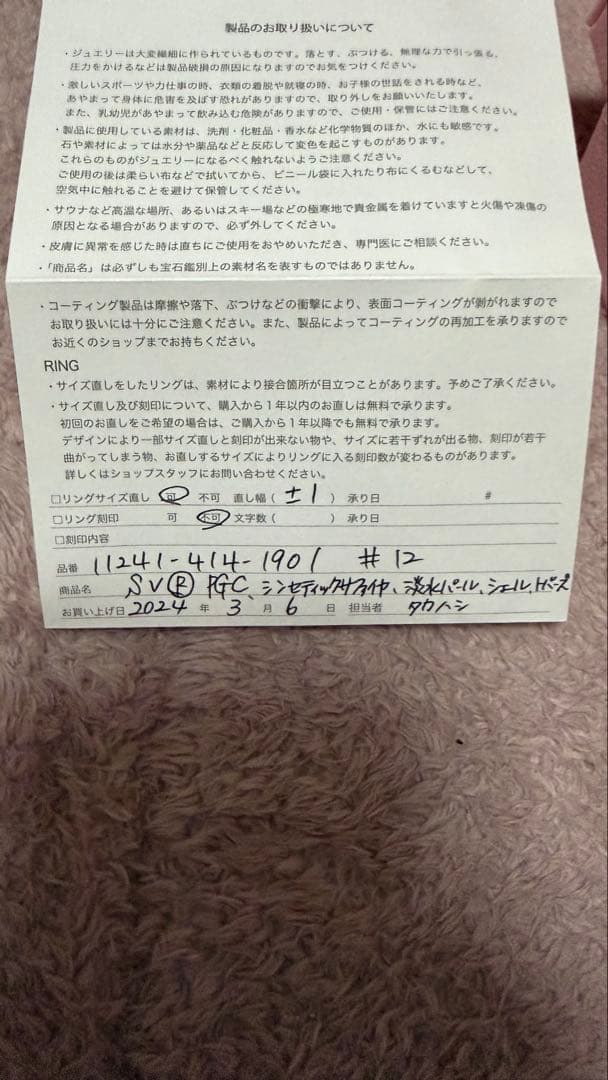 製品のお取り扱いについて
・ジュエリーは大変繊細に作られているものです。落とす、ぶつける、無理な力で引っ張る、
圧力をかけるなどは製品破損の原因になりますのでお気をつけください。
・激しいスポーツや力仕事の時、衣類の着脱や就寝の時、お子様の世話をされる時など、
あやまって身体に危害を及ぼす恐れがありますので、取り外しをお願いいたします。
また、乳幼児があやまって飲み込む危険がありますので、ご使用・保管にはご注意ください。
・製品に使用している素材は、洗剤・化粧品・香水など化学物質のほか、水にも敏感です。
石や素材によっては水分や薬品などと反応して変色を起こすものがあります。
これらのものがジュエリーになるべく触れないようご注意ください。
ご使用の後は柔らい布などで拭いてから、ビニール袋に入れたり布にくるむなどして、
空気中に触れることを避けて保管してください。
・サウナなど高温な場所、あるいはスキー場などの極寒地で貴金属を着けていますと火傷や凍傷の
原因となる場合がありますので、必ず外してください。
・皮膚に異常を感じた時は直ちにご使用をおやめいただき、専門医にご相談ください。
・「商品名」は必ずしも宝石鑑別上の素材名を表すものではありません。
・コーティング製品は摩擦や落下、ぶつけなどの衝撃により、表面コーティングが剥がれますので
お取り扱いには十分にご注意ください。また、製品によってコーティングの再加工を承りますので
お近くのショップまでお持ちください。
RING
・サイズ直しをしたリングは、素材により接合箇所が目立つことがあります。予めご了承ください。
・サイズ直し及び刻印について、購入から1年以内のお直しは無料で承ります。
初回のお直しをご希望の場合は、ご購入から1年以降でも無料で承ります。
デザインにより一部サイズ直しと刻印が出来ない物や、サイズに若干ずれが出る物、刻印が若干
曲がってしまう物、お直しするサイズによりリングに入る刻印数が変わるものがあります。
詳しくはショップスタッフにお問い合わせください。
□リングサイズ直し 可 不可 直し幅( ±1 ) 承り日 #
□リング刻印 可 不可 文字数( ) 承り日
□刻印内容
品番 11241-414-1901 #12
商品名 SV Ⓡ PGC、シンセティックサファイヤ、淡水パール、シェル、トパーズ
お買い上げ日 2024 年 3 月 6 日 担当者 タカハシ